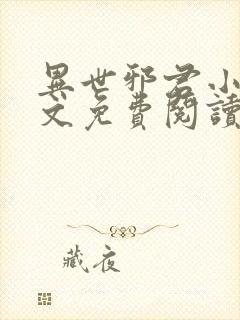 異世邪君小
文免費閱讀
藏夜